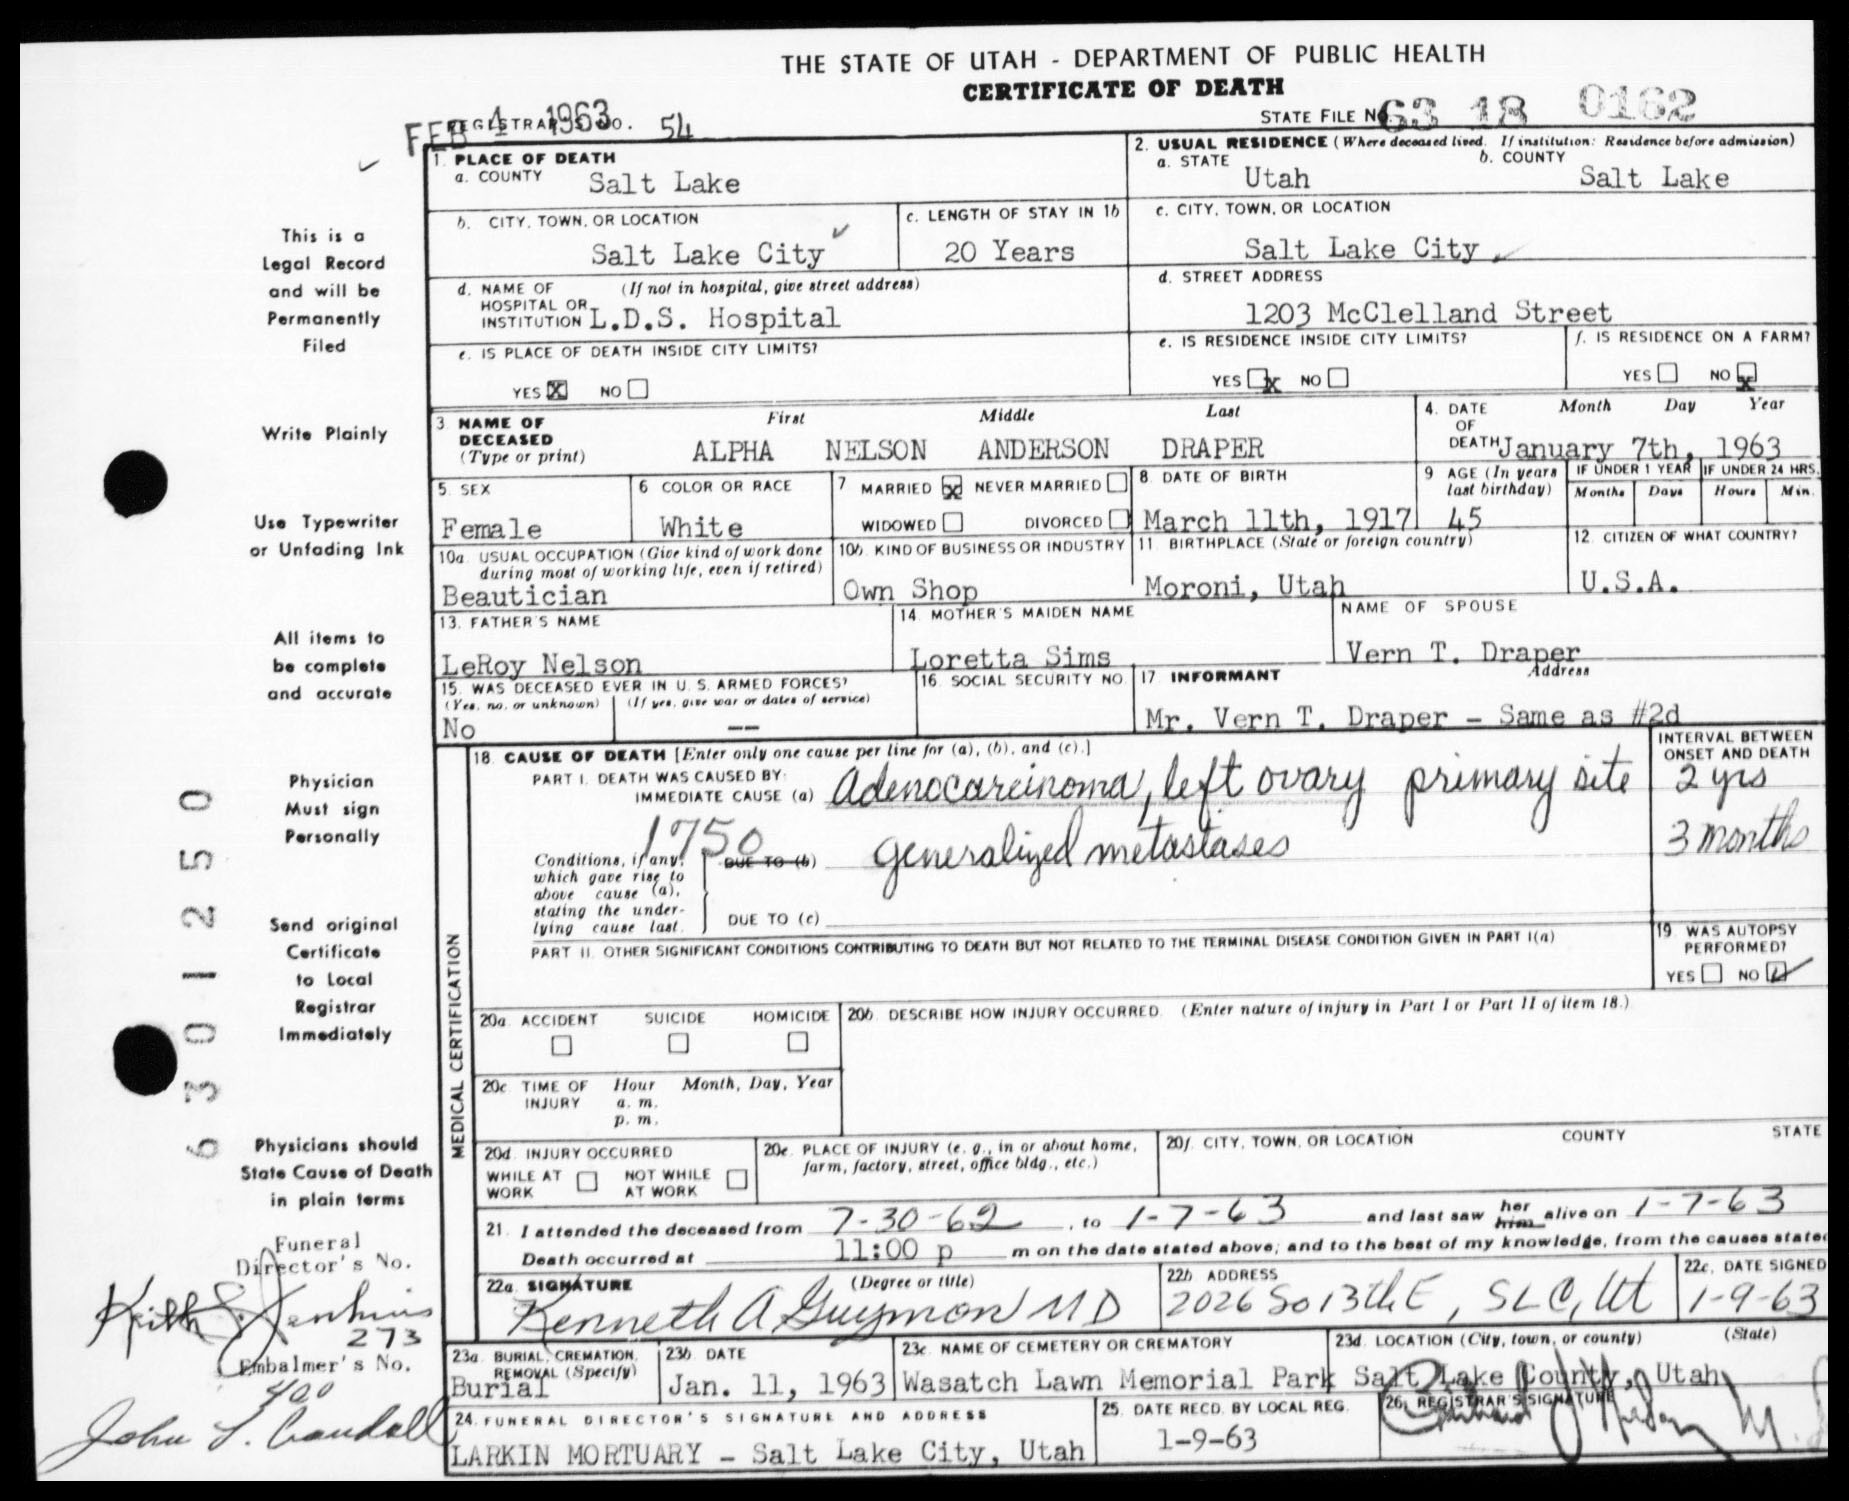 THE STATE OF UTAH - DEPARTMENT OF PUBLIC HEALTH
CERTIFICATE OF DEATH
FEB 1 1963
REGISTRAR'S NO. 54
STATE FILE NO. 63 18 0162
1. PLACE OF DEATH
a. COUNTY Salt Lake
2. USUAL RESIDENCE (Where deceased lived. If institution: Residence before admission)
a. STATE Utah
b. COUNTY Salt Lake
b. CITY, TOWN, OR LOCATION
Salt Lake City
c. LENGTH OF STAY IN 1b
20 Years
c. CITY, TOWN, OR LOCATION
Salt Lake City
d. NAME OF HOSPITAL OR INSTITUTION (If not in hospital, give street address)
L.D.S. Hospital
d. STREET ADDRESS
1203 McClelland Street
e. IS PLACE OF DEATH INSIDE CITY LIMITS?
YES X NO
e. IS RESIDENCE INSIDE CITY LIMITS?
YES X NO
f. IS RESIDENCE ON A FARM?
YES NO X
3. NAME OF DECEASED (Type or print)
First Middle Last
ALPHA NELSON ANDERSON DRAPER
4. DATE OF DEATH Month Day Year
January 7th, 1963
5. SEX
Female
6 COLOR OR RACE
White
7 MARRIED X NEVER MARRIED
WIDOWED DIVORCED
8. DATE OF BIRTH
March 11th, 1917
9 AGE (In years last birthday)
45
IF UNDER 1 YEAR
Months Days
IF UNDER 24 HRS.
Hours Min.
10a. USUAL OCCUPATION (Give kind of work done during most of working life, even if retired)
Beautician
10b. KIND OF BUSINESS OR INDUSTRY
Own Shop
11. BIRTHPLACE (State or foreign country)
Moroni, Utah
12. CITIZEN OF WHAT COUNTRY?
U.S.A.
13. FATHER'S NAME
LeRoy Nelson
14. MOTHER'S MAIDEN NAME
Loretta Sims
NAME OF SPOUSE
Vern T. Draper
15. WAS DECEASED EVER IN U. S. ARMED FORCES?
(Yes, no, or unknown) (If yes, give war or dates of service)
No --
16. SOCIAL SECURITY NO.
17 INFORMANT Address
Mr. Vern T. Draper - Same as #2d
18. CAUSE OF DEATH [Enter only one cause per line for (a), (b), and (c).]
INTERVAL BETWEEN ONSET AND DEATH
PART I. DEATH WAS CAUSED BY:
IMMEDIATE CAUSE (a) Adenocarcinoma, left ovary primary site 2 yrs
1750
Conditions, if any, which gave rise to above cause (a), stating the underlying cause last.
DUE TO (b) generalized metastases 3 months
DUE TO (c)
PART II. OTHER SIGNIFICANT CONDITIONS CONTRIBUTING TO DEATH BUT NOT RELATED TO THE TERMINAL DISEASE CONDITION GIVEN IN PART I(a)
19. WAS AUTOPSY PERFORMED?
YES NO ✓
MEDICAL CERTIFICATION
20a. ACCIDENT SUICIDE HOMICIDE
20b. DESCRIBE HOW INJURY OCCURRED. (Enter nature of injury in Part I or Part II of item 18.)
20c TIME OF INJURY Hour Month, Day, Year
a. m.
p. m.
20d. INJURY OCCURRED
WHILE AT WORK NOT WHILE AT WORK
20e. PLACE OF INJURY (e. g., in or about home, farm, factory, street, office bldg., etc.)
20f. CITY, TOWN, OR LOCATION COUNTY STATE
21. I attended the deceased from 7-30-62, to 1-7-63 and last saw her him alive on 1-7-63
Death occurred at 11:00 p m on the date stated above; and to the best of my knowledge, from the causes state
22a SIGNATURE (Degree or title)
Kenneth A Guymon MD
22b ADDRESS
2026 So 13th E, SLC, Ut
22c. DATE SIGNED
1-9-63
23a. BURIAL, CREMATION, REMOVAL (Specify)
Burial
23b. DATE
Jan. 11, 1963
23c. NAME OF CEMETERY OR CREMATORY
Wasatch Lawn Memorial Park
23d. LOCATION (City, town, or county) (State)
Salt Lake County, Utah
24. FUNERAL DIRECTOR'S SIGNATURE AND ADDRESS
LARKIN MORTUARY - Salt Lake City, Utah
25. DATE RECD. BY LOCAL REG.
1-9-63
26. REGISTRAR'S SIGNATURE
This is a
Legal Record
and will be
Permanently
Filed
Write Plainly
Use Typewriter
or Unfading Ink
All items to
be complete
and accurate
Physician
Must sign
Personally
Send original
Certificate
to Local
Registrar
Immediately
Physicians should
State Cause of Death
in plain terms
Funeral
Director's No.
Keith S. Jenkins
273
Embalmer's No.
400
John L. Crandall
6301250